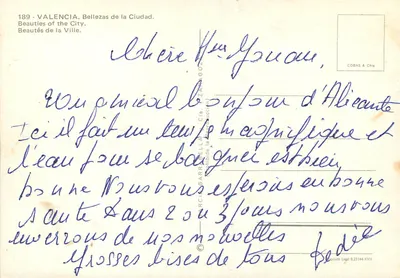 189 - VALENCIA. Bellezas de la Ciudad.
Beauties of the City.
Beautés de la Ville.
chère Mme
Un amical bonjour d'Alicante
Ici il fait un temps magnifique et
l'eau pour se baigner est bien
bonne Nous vous espérons en bonne
sante Dans 2 ou 3 jours nous vous
enverrons de nos nouvelles
Grosses bises de tous